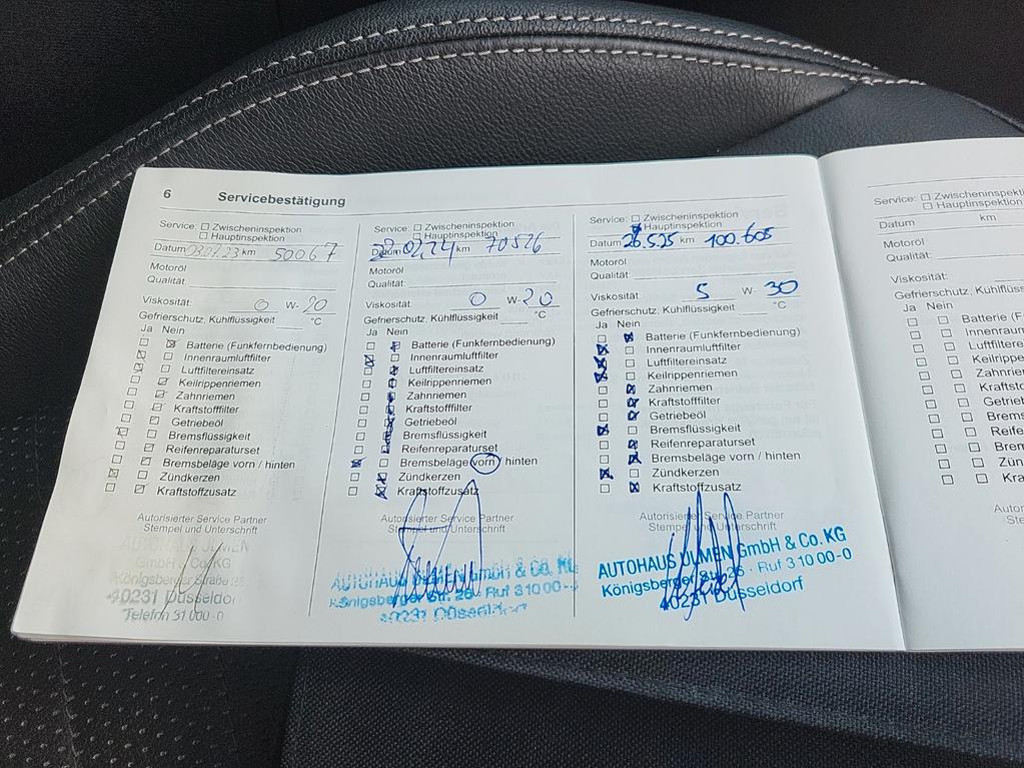 6 Servicebestätigung
Service: Zwischeninspektion
Hauptinspektion
Datum 03.07.23 km 50067
Motoröl
Qualität:
Viskosität: 0 W- 20
Gefrierschutz, Kühlflüssigkeit °C
Ja Nein
Batterie (Funkfernbedienung)
Innenraumluftfilter
Luftfiltereinsatz
Keilrippenriemen
Zahnriemen
Kraftstofffilter
Getriebeöl
Bremsflüssigkeit
Reifenreparaturset
Bremsbeläge vorn / hinten
Zündkerzen
Kraftstoffzusatz
Autorisierter Service Partner
Stempel und Unterschrift
AUTOHAUS ULMEN
GmbH & Co. KG
Königsberger Straße
40231 Düsseldorf
Telefon 31 000-0
Service: Zwischeninspektion
Hauptinspektion
Datum 02.24 km 70526
Motoröl
Qualität:
Viskosität: 0 W- 20
Gefrierschutz, Kühlflüssigkeit °C
Ja Nein
Batterie (Funkfernbedienung)
Innenraumluftfilter
Luftfiltereinsatz
Keilrippenriemen
Zahnriemen
Kraftstofffilter
Getriebeöl
Bremsflüssigkeit
Reifenreparaturset
Bremsbeläge vorn / hinten
Zündkerzen
Kraftstoffzusatz
Autorisierter Service Partner
Stempel und Unterschrift
AUTOHAUS ULMEN GmbH & Co. KG
Königsberger Str. 26 · Ruf 3 10 00-0
40231 Düsseldorf
Service: Zwischeninspektion
Hauptinspektion
Datum 26.5.25 km 100.605
Motoröl
Qualität:
Viskosität: 5 W- 30
Gefrierschutz, Kühlflüssigkeit °C
Ja Nein
Batterie (Funkfernbedienung)
Innenraumluftfilter
Luftfiltereinsatz
Keilrippenriemen
Zahnriemen
Kraftstofffilter
Getriebeöl
Bremsflüssigkeit
Reifenreparaturset
Bremsbeläge vorn / hinten
Zündkerzen
Kraftstoffzusatz
Autorisierter Service Partner
Stempel und Unterschrift
AUTOHAUS ULMEN GmbH & Co. KG
Königsberger Str. 26 · Ruf 3 10 00-0
40231 Düsseldorf
Service: Zwischeninspektion
Hauptinspektion
Datum km
Motoröl
Qualität:
Viskosität:
Gefrierschutz, Kühlflüssigkeit
Ja Nein
Batterie (F
Innenraum
Luftfiltere
Keilrippen
Zahnrie
Kraftsto
Getrieb
Brems
Reifen
Brem
Zün
Kra
Autor
St